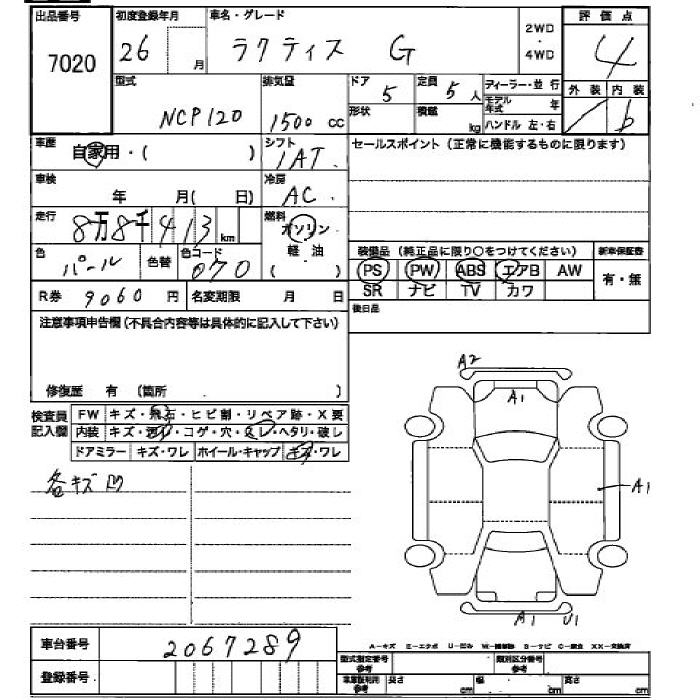 出品番号 初度登録年月 車名・グレード 2WD ・ 4WD 評価点
7020 26 月 ラクティス G 4
型式 排気量 ドア 5 定員 5人 ディーラー・並行 外装 内装
NCP120 1500 cc 形状 積載 kg モデル年式 年 b
ハンドル 左・右
車歴 自家用・( ) シフト 1AT セールスポイント (正常に機能するものに限ります)
車検 年 月( 日) 冷房 AC
走行 8万8千413 km 燃料 ガソリン 軽油 ( )
色 パール 色替 色コード 070
装備品 (純正品に限り○をつけてください) 新車保証書
PS PW ABS エアB AW 有・無
SR ナビ TV カワ
R券 9060 円 名変期限 月 日 後日品
注意事項申告欄(不具合内容等は具体的に記入して下さい)
修復歴 有 (箇所 )
検査員記入欄 FW キズ・飛石・ヒビ割・リペア跡・X要
内装 キズ・汚れ・コゲ・穴・スレ・ヘタリ・破レ
ドアミラー キズ・ワレ ホイール・キャップ キズ・ワレ
各キズ凹
A2
A1
A1
A1 U1
車台番号 2067289
A−キズ E−エクボ U−凹み S−サビ C−腐食 XX−交換済
登録番号 型式指定番号 参考 類別区分番号 参考
長さ cm 幅 cm 高さ cm